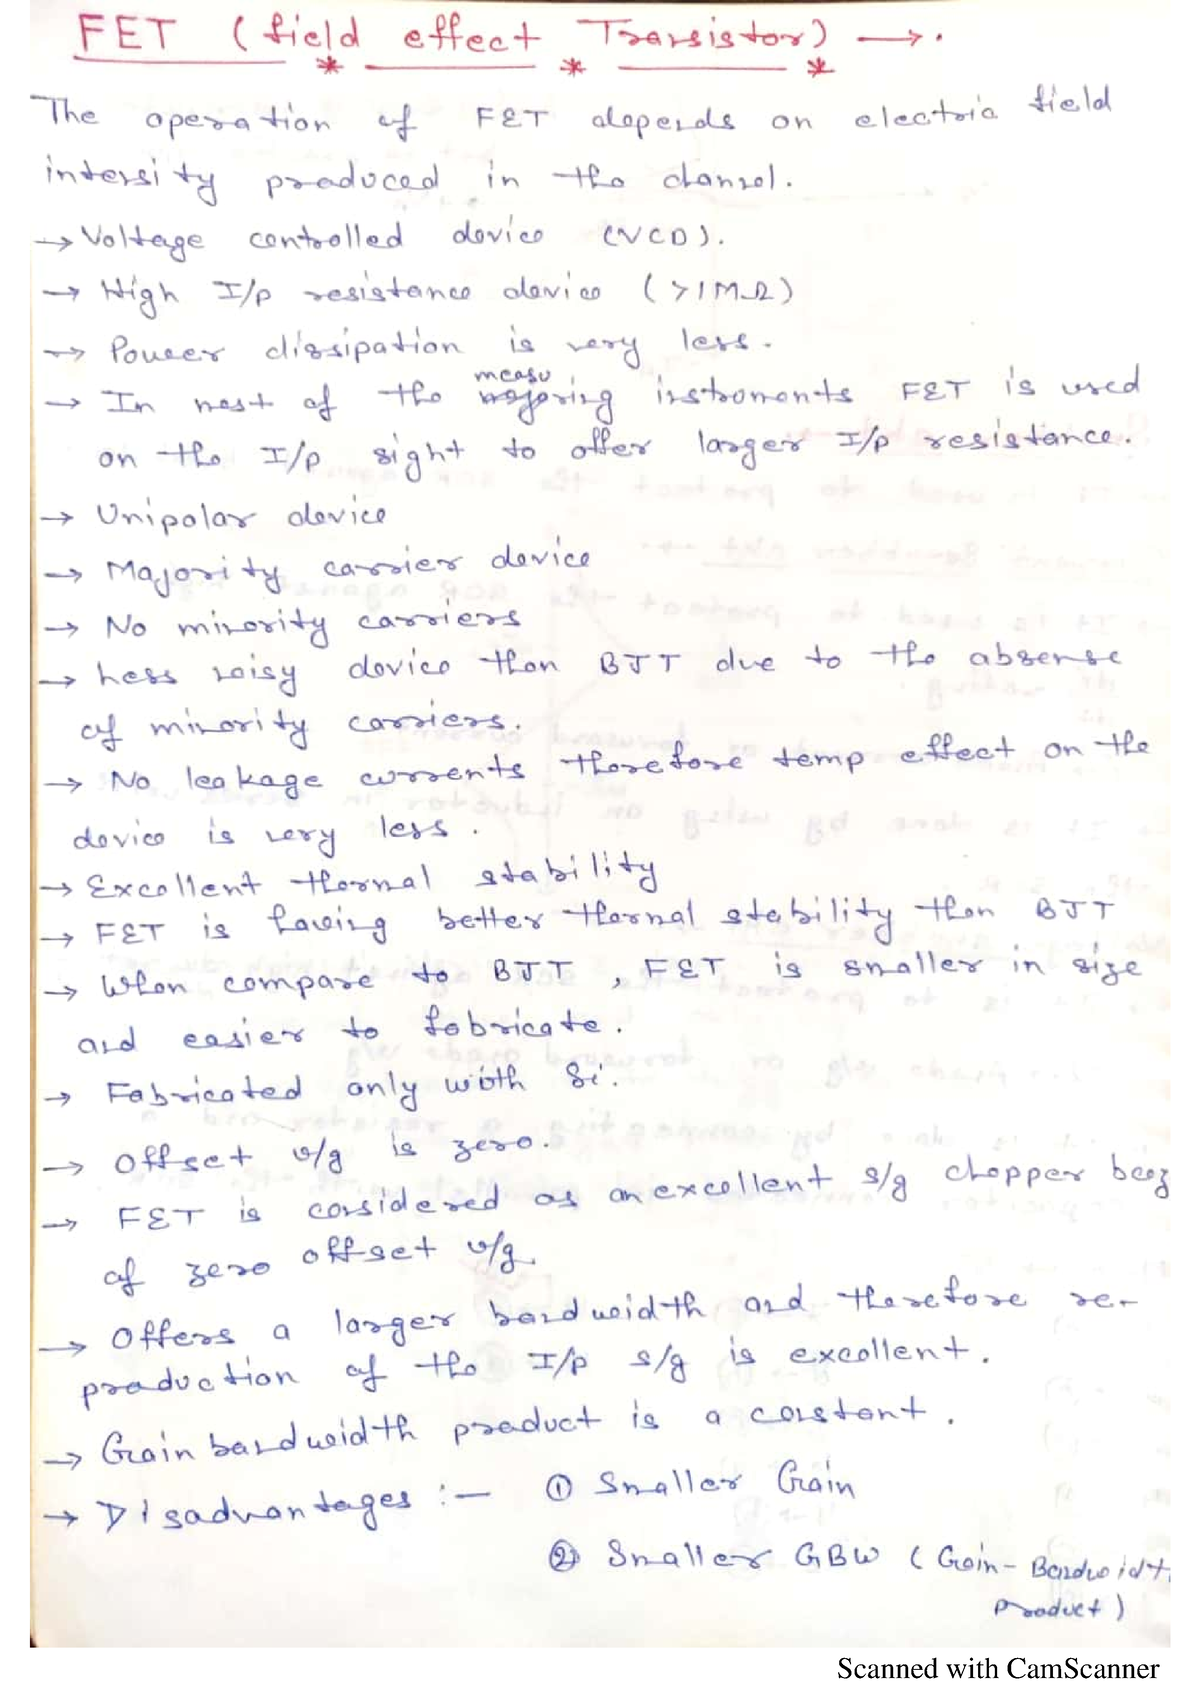 FET (field effect Transistor) →.
The operation of FET depends on electric field
intensity produced in the channel.
→ Voltage controlled device (VCD).
→ High I/p resistance device (>1MΩ)
→ Power dissipation is very less.
→ In most of the measuring instruments FET is used
on the I/p sight to offer larger I/p resistance.
→ Unipolar device
→ Majority carrier device
→ No minority carriers
→ Less noisy device than BJT due to the absense
of minority carriers.
→ No leakage currents therefore temp effect on the
device is very less.
→ Excellent thermal stability
→ FET is having better thermal stability than BJT
→ When compare to BJT, FET is smaller in size
and easier to fabricate.
→ Fabricated only with Si.
→ Offset v/g is zero.
→ FET is considered as an excellent s/g chopper becz
of zero offset v/g.
→ Offers a larger bandwidth and therefore re-
production of the I/p s/g is excellent.
→ Gain bandwidth product is a constant.
→ Disadvantages :— ① Smaller Gain
② Smaller GBW (Gain-Bandwidt
Product)
Scanned with CamScanner